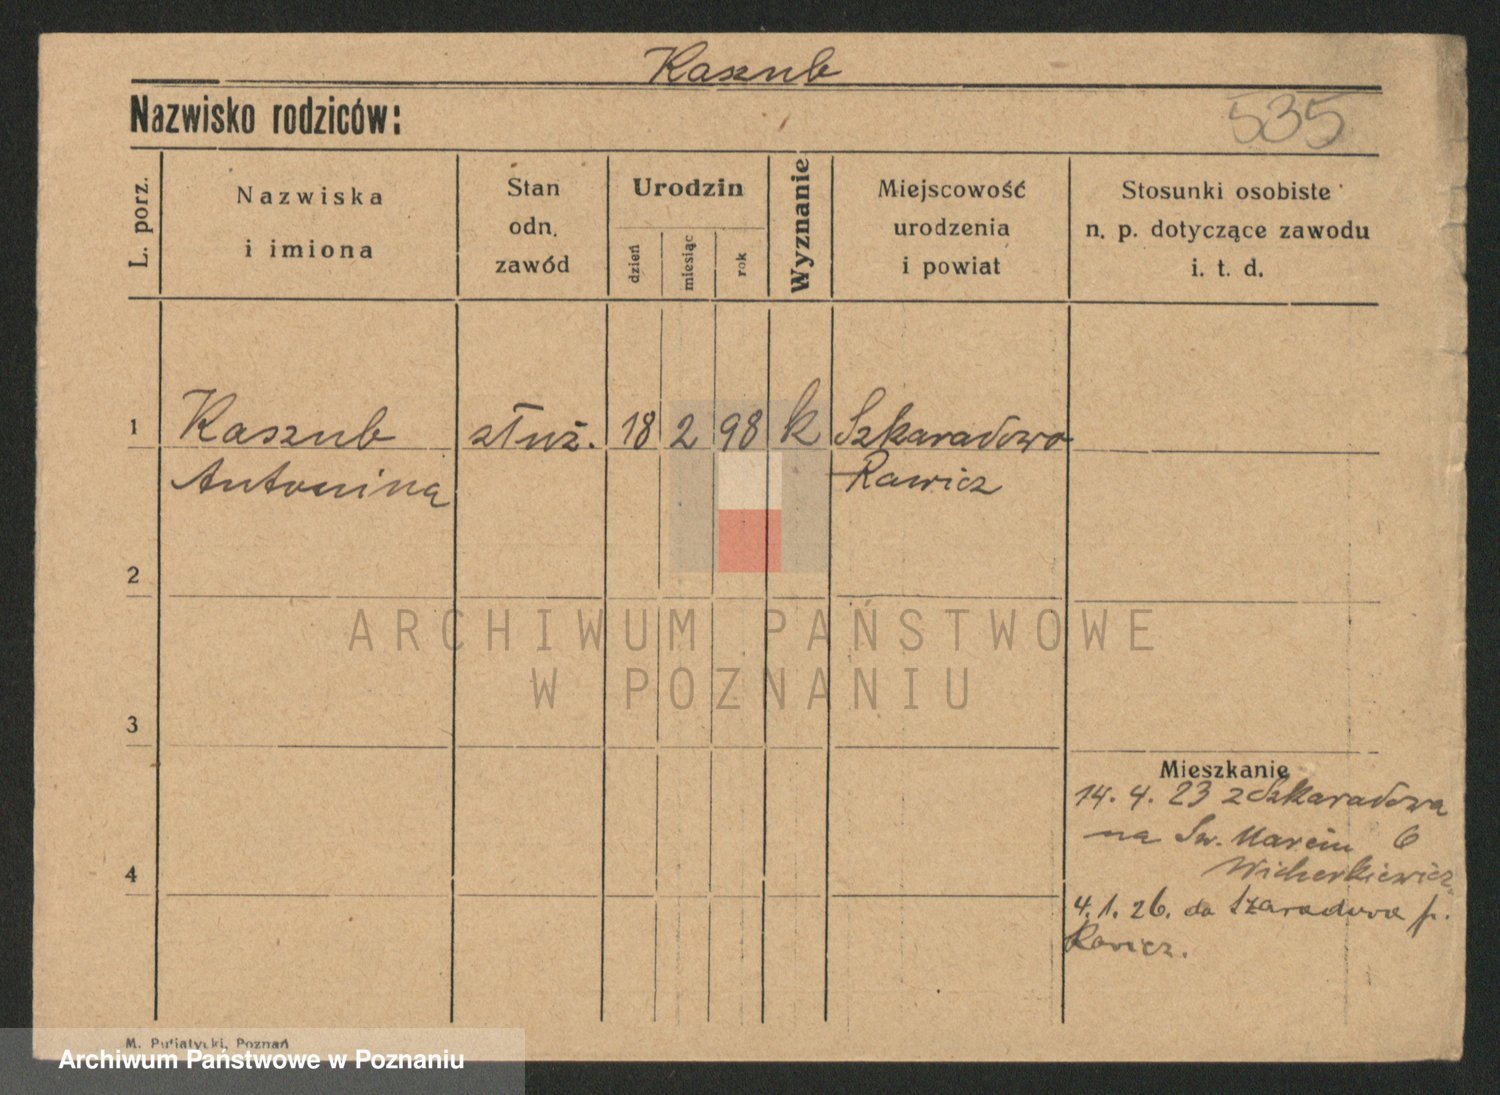 Kaszub
Nazwisko rodziców:
535
L. porz.
Nazwiska
i imiona
Stan
odn.
zawód
Urodzin
dzień
miesiąc
rok
Wyznanie
Miejscowość
urodzenia
i powiat
Stosunki osobiste
n. p. dotyczące zawodu
i. t. d.
1 Kaszub służ. 18 2 98 k Szkaradowo
Antonina Rawicz
2
ARCHIWUM PAŃSTWOWE
W POZNANIU
3
Mieszkanie
14. 4. 23 z Szkaradowa
na Św. Marcin 6
Wicherkiewicz
4
4. 1. 26. do Szaradowa p.
Rawicz.
M. Putiatycki, Poznań
Archiwum Państwowe w Poznaniu